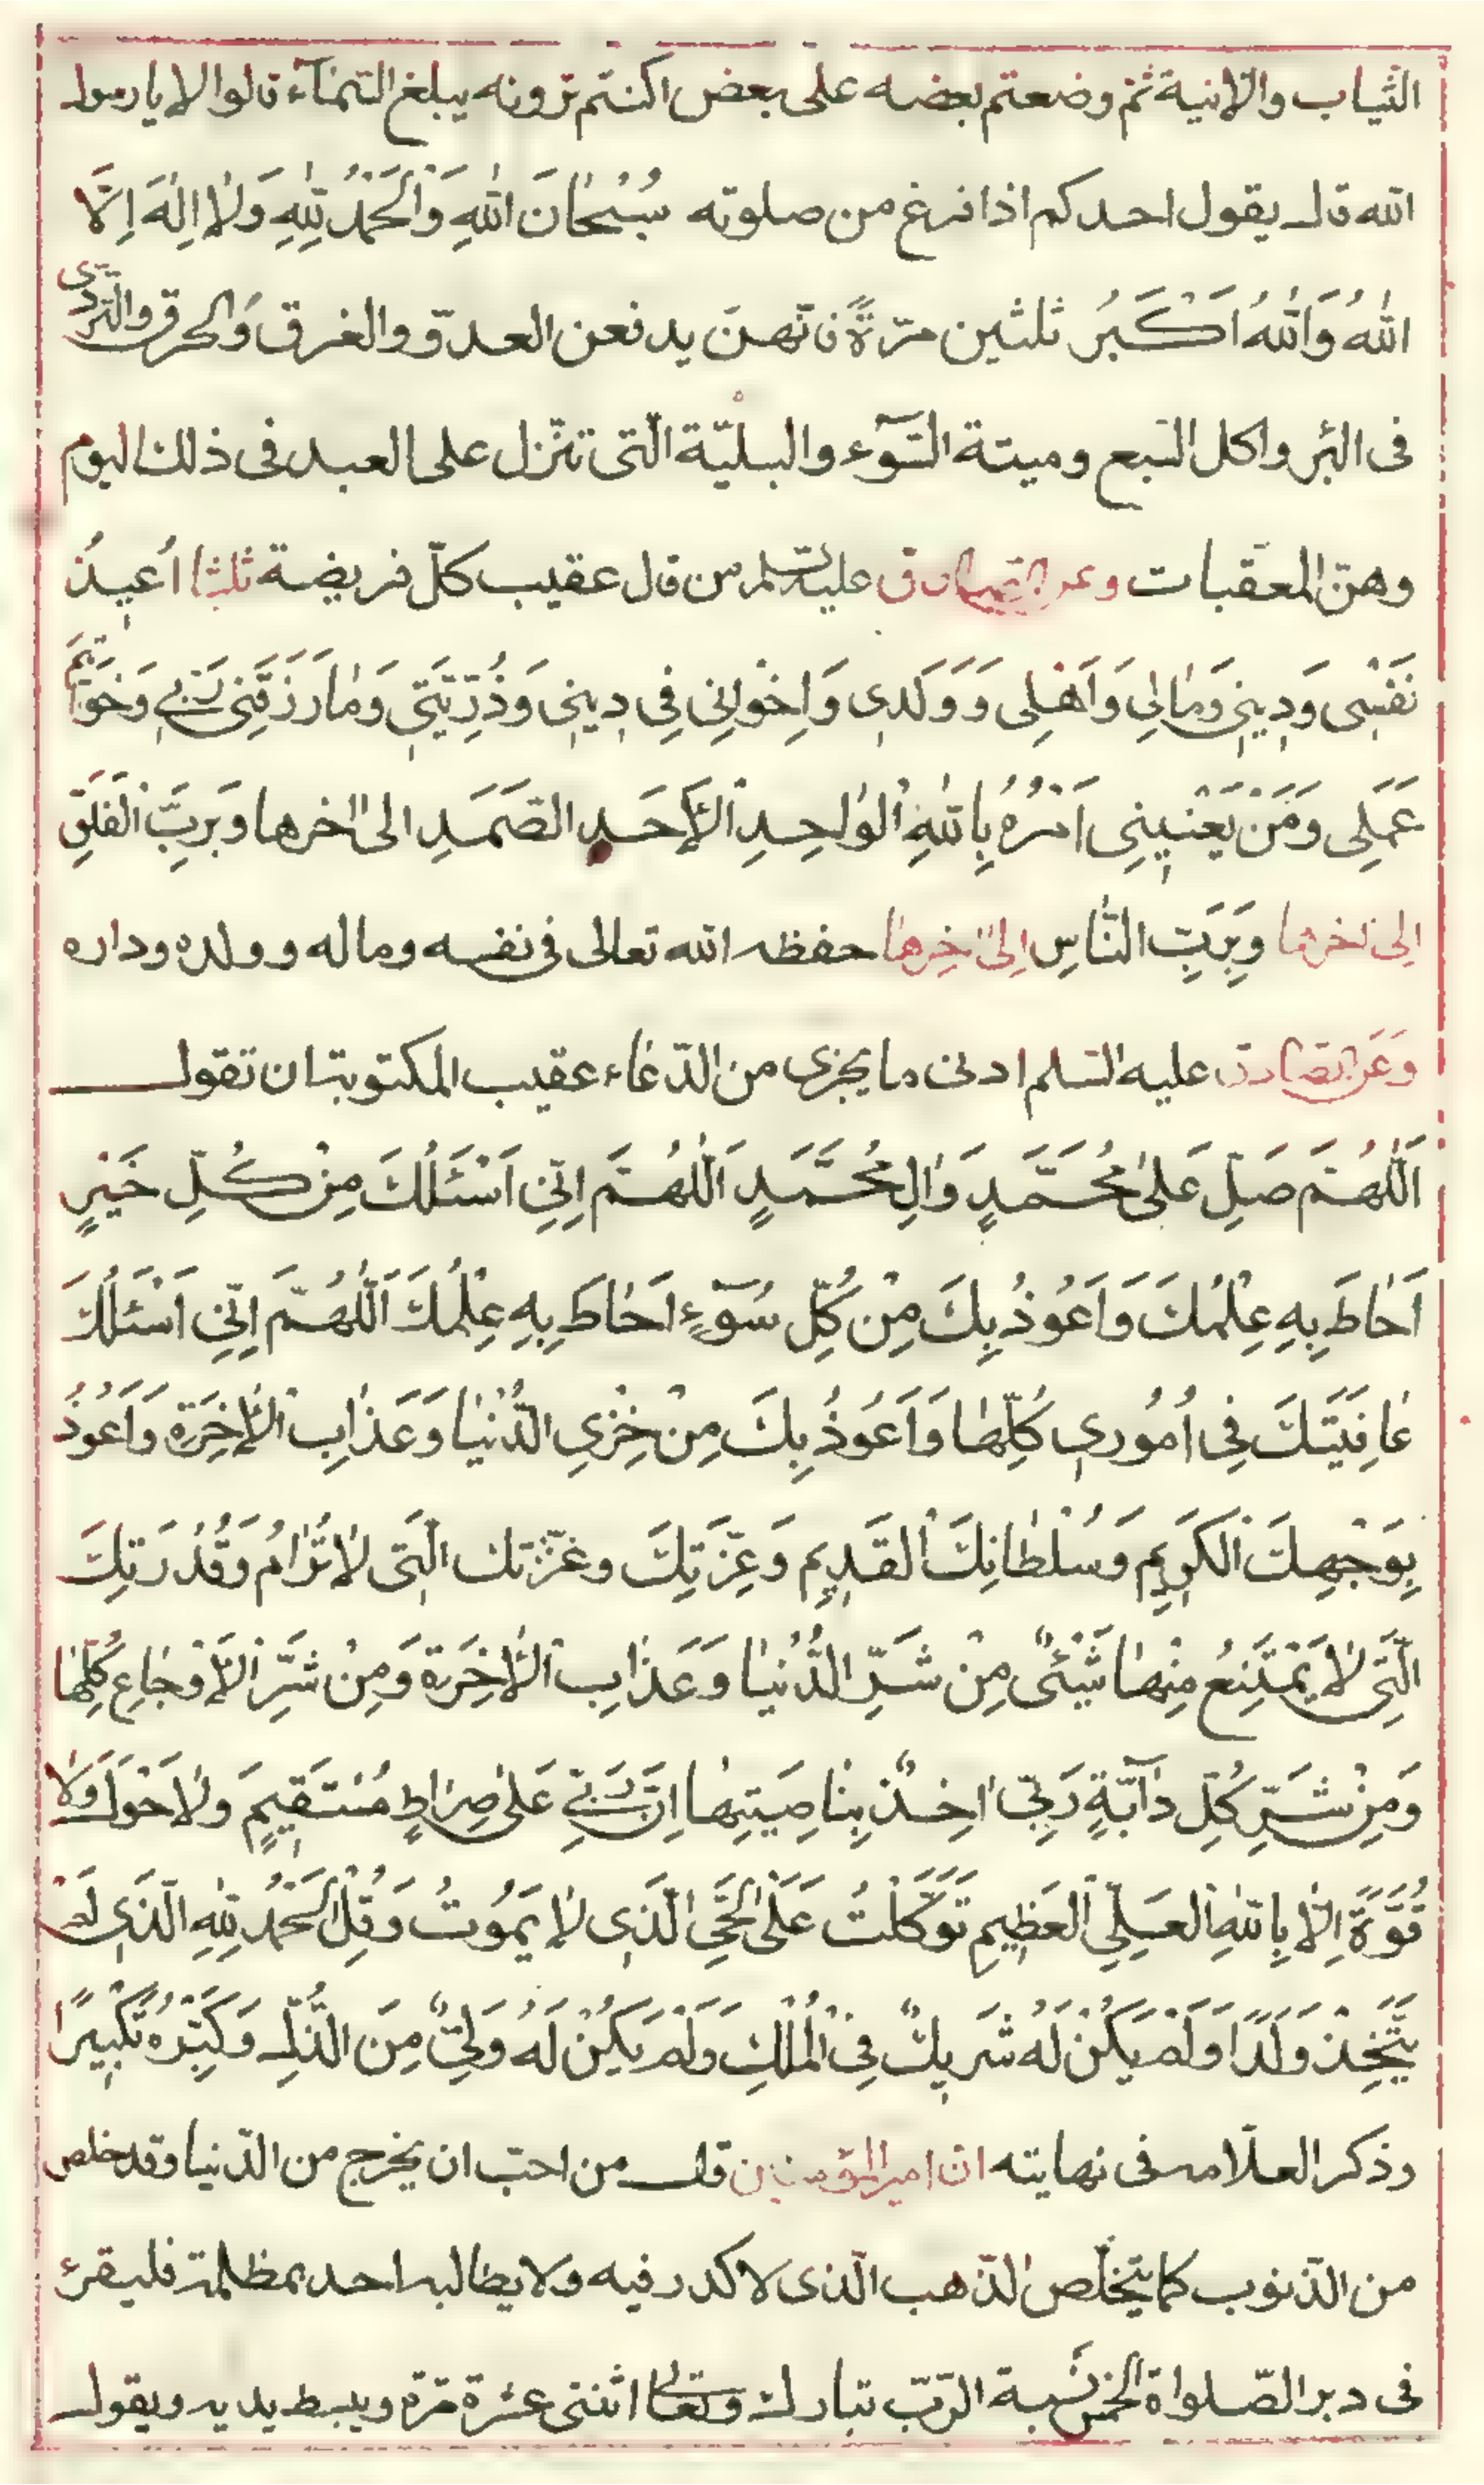 الثياب والانية ثم وضعتم بعضه على بعض اكنتم ترونه يبلغ السّمآء قالوا لا يا رسول
الله قال يقول احدكم اذا فرغ من صلوته سُبْحٰانَ اللهِ وَالْحَمْدُ لِلّٰهِ وَلاٰ اِلٰهَ اِلاَّ
اللهُ وَاللهُ اَكْبَرُ ثلثين مرّةً فانّهنّ يدفعن العدوّ والغرق وَالحرق والتردّى
فى البئر واكل السّبع وميتة السّوٓء والبليّة الّتى تنزل على العبد فى ذلك اليوم
وهنّ المعقّبات وعن الصادق عليه السلم من قال عقيب كلّ فريضة ثلثا اُعيذُ
نَفْسِى وَدِينِى وَمٰالِى وَاَهْلِى وَوَلَدِى وَاِخْوٰانِى فِى دِينِى وَذُرِّيَّتِى وَمٰا رَزَقَنِى رَبِّى وَخَوٰاتِيمَ
عَمَلِى وَمَنْ يَعْنِينِى اَمْرُهُ بِاللهِ الْوٰاحِدِ الْاَحَدِ الصَّمَدِ الى اٰخرها وَبِرَبِّ الْفَلَقِ
اِلىٰ اٰخرها وَبِرَبِّ النّٰاسِ اِلىٰ اٰخِرهٰا حفظه الله تعالى فى نفسه وماله وولده وداره
وَعَن الصّادق عليه السّلم ادنى ما يجزى من الدّعاء عقيب المكتوبة ان تقول
اَللّٰهُمَّ صَلِّ عَلىٰ مُحَمَّدٍ وَاٰلِ مُحَمَّدٍ اَللّٰهُمَّ اِنِّى اَسْئَلُكَ مِنْ كُلِّ خَيْرٍ
اَحٰاطَ بِهِ عِلْمُكَ وَاَعُوذُ بِكَ مِنْ كُلِّ سُوٓءٍ اَحٰاطَ بِهِ عِلْمُكَ اَللّٰهُمَّ اِنِّى اَسْئَلُكَ
عٰافِيَتَكَ فِى اُمُورِى كُلِّهٰا وَاَعُوذُ بِكَ مِنْ خِزْىِ الدُّنْيٰا وَعَذٰابِ الْاٰخِرَةِ وَاَعُوذُ
بِوَجْهِكَ الْكَرِيمِ وَسُلْطٰانِكَ الْقَدِيمِ وَعِزَّتِكَ وعزّتك الَّتِى لاٰ تُرٰامُ وَقُدْرَتِكَ
الَّتِى لاٰ يَمْتَنِعُ مِنْهٰا شَيْئٌ مِنْ شَرِّ الدُّنْيٰا وَعَذٰابِ الْاٰخِرَةِ وَمِنْ شَرِّ الْاَوْجٰاعِ كُلِّهٰا
وَمِنْ شَرِّ كُلِّ دٰآبَّةٍ رَبِّى اٰخِذٌ بِنٰاصِيَتِهٰا اِنَّ رَبِّى عَلىٰ صِرٰاطٍ مُسْتَقِيمٍ وَلاٰ حَوْلَ وَلاٰ
قُوَّةَ اِلاّٰ بِاللهِ الْعَلِىِّ الْعَظِيمِ تَوَكَّلْتُ عَلَى الْحَىِّ الَّذِى لاٰ يَمُوتُ وَقُلِ الْحَمْدُ لِلّٰهِ الَّذِى لَمْ
يَتَّخِذْ وَلَدًا وَلَمْ يَكُنْ لَهُ شَرِيكٌ فِى الْمُلْكِ وَلَمْ يَكُنْ لَهُ وَلِىٌّ مِنَ الذُّلِّ وَكَبِّرْهُ تَكْبِيرًا
وذكر العلّامه فى نهايته انّ امير المؤمنين قال من احبّ ان يخرج من الدّنيا وقد خلص
من الذّنوب كما يتخلّص الذّهب الّذى لا كدر فيه ولا يطالبه احد بمظلمة فليقرئ
فى دبر الصّلواة الخمس نسبة الرّبّ تبارك وتعالى اثنتى عشرة مرّة ويبسط يديه ويقول